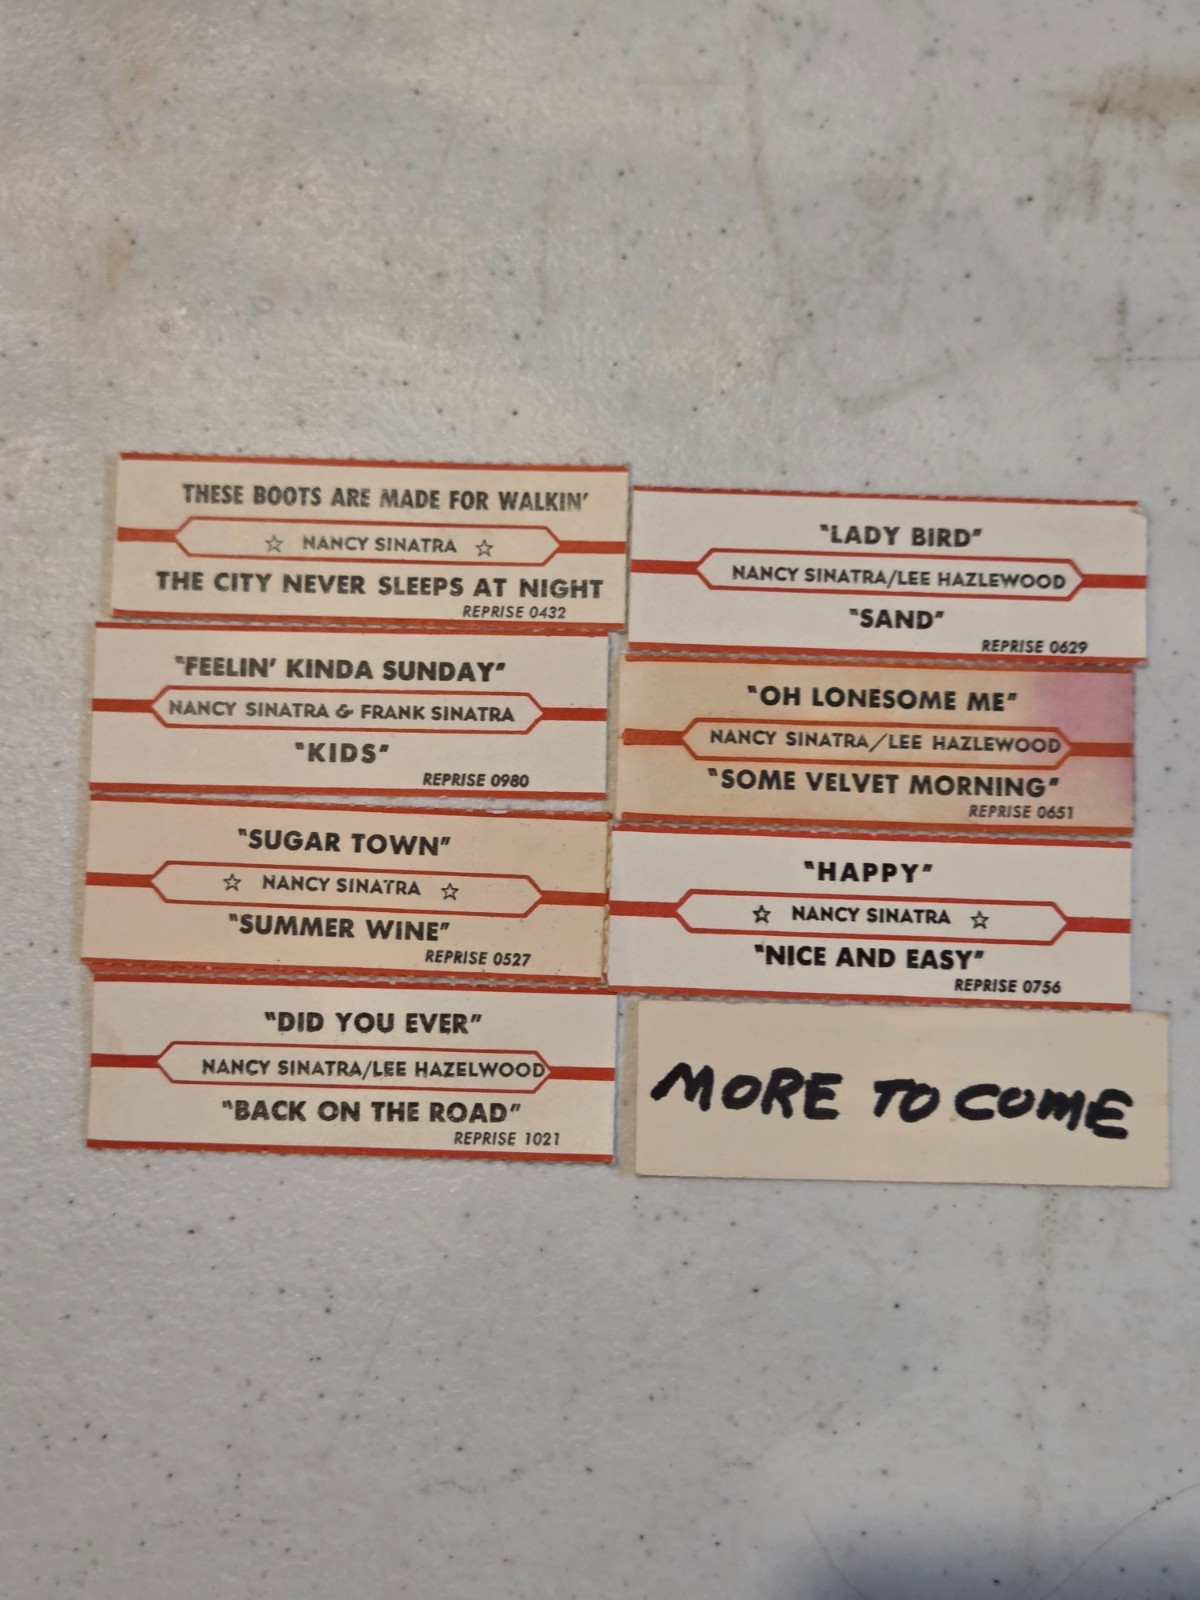 THESE BOOTS ARE MADE FOR WALKIN'
☆ NANCY SINATRA ☆
THE CITY NEVER SLEEPS AT NIGHT
REPRISE 0432
"FEELIN' KINDA SUNDAY"
NANCY SINATRA & FRANK SINATRA
"KIDS"
REPRISE 0980
"SUGAR TOWN"
☆ NANCY SINATRA ☆
"SUMMER WINE"
REPRISE 0527
"DID YOU EVER"
NANCY SINATRA/LEE HAZELWOOD
"BACK ON THE ROAD"
REPRISE 1021
"LADY BIRD"
NANCY SINATRA/LEE HAZLEWOOD
"SAND"
REPRISE 0629
"OH LONESOME ME"
NANCY SINATRA/LEE HAZLEWOOD
"SOME VELVET MORNING"
REPRISE 0651
"HAPPY"
☆ NANCY SINATRA ☆
"NICE AND EASY"
REPRISE 0756
MORE TO COME